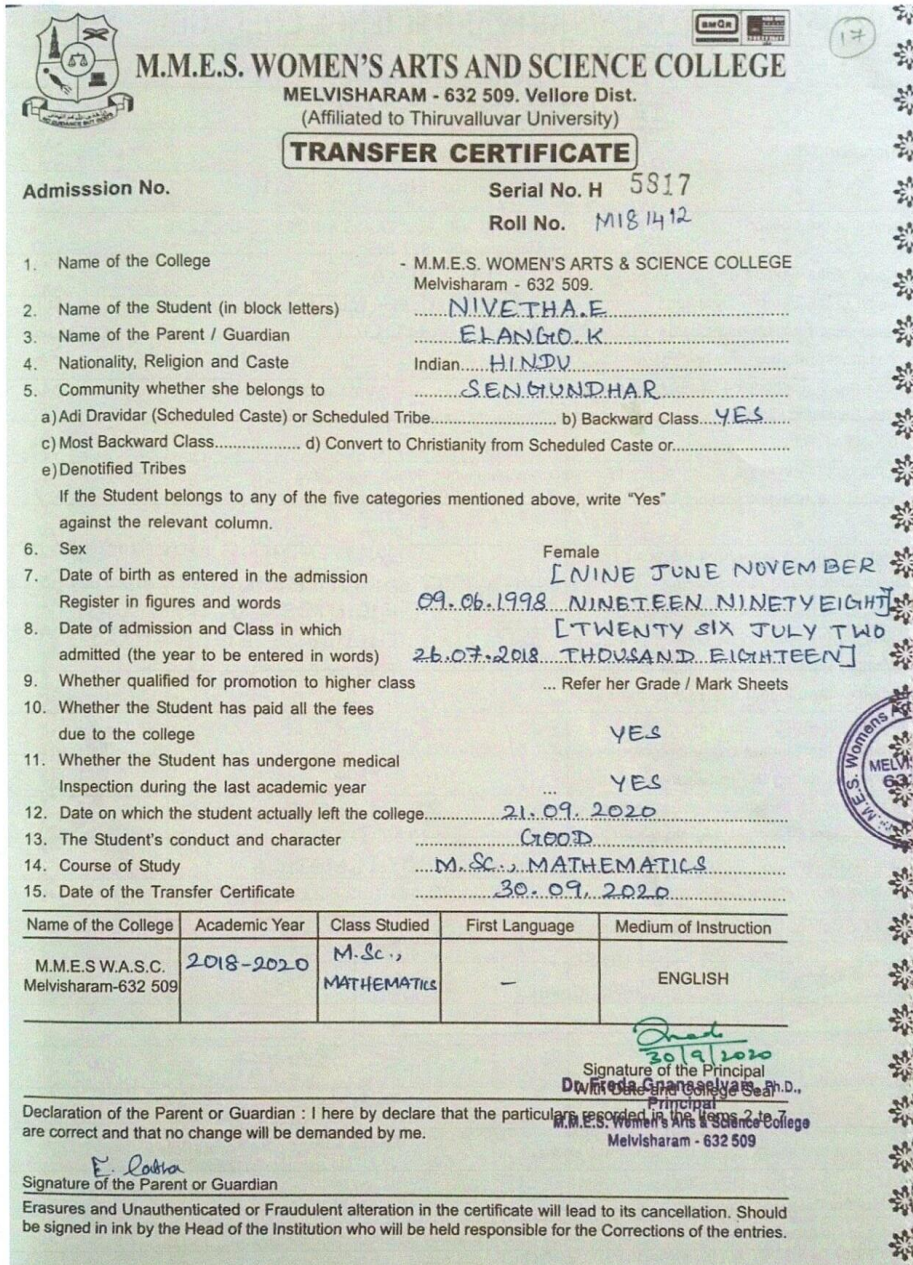 BMQR
17
M.M.E.S. WOMEN'S ARTS AND SCIENCE COLLEGE
MELVISHARAM - 632 509. Vellore Dist.
(Affiliated to Thiruvalluvar University)
TRANSFER CERTIFICATE
Admisssion No. Serial No. H 5817
Roll No. M181412
1. Name of the College - M.M.E.S. WOMEN'S ARTS & SCIENCE COLLEGE
Melvisharam - 632 509.
2. Name of the Student (in block letters) ......NIVETHA.E......
3. Name of the Parent / Guardian ......ELANGO.K......
4. Nationality, Religion and Caste Indian.....HINDU......
5. Community whether she belongs to ......SENGUNDHAR......
a) Adi Dravidar (Scheduled Caste) or Scheduled Tribe............................ b) Backward Class...YES......
c) Most Backward Class................... d) Convert to Christianity from Scheduled Caste or............................
e) Denotified Tribes
If the Student belongs to any of the five categories mentioned above, write "Yes"
against the relevant column.
6. Sex Female
7. Date of birth as entered in the admission [NINE JUNE NOVEMBER
Register in figures and words 09.06.1998 NINETEEN NINETY EIGHT]
8. Date of admission and Class in which [TWENTY SIX JULY TWO
admitted (the year to be entered in words) 26.07.2018 THOUSAND EIGHTEEN]
9. Whether qualified for promotion to higher class ... Refer her Grade / Mark Sheets
10. Whether the Student has paid all the fees
due to the college YES
11. Whether the Student has undergone medical
Inspection during the last academic year ... YES
12. Date on which the student actually left the college......21.09.2020......
13. The Student's conduct and character ......GOOD......
14. Course of Study ....M.Sc., MATHEMATICS......
15. Date of the Transfer Certificate ......30.09.2020......
M.E.S. Womens
MELVI
Name of the College Academic Year Class Studied First Language Medium of Instruction
M.M.E.S W.A.S.C. 2018-2020 M.Sc., – ENGLISH
Melvisharam-632 509 MATHEMATICS
30/9/2020
Signature of the Principal
With Date and College Seal
Dr. Freda Gnanaselvam, Ph.D.,
Principal
M.M.E.S. Women's Arts & Science College
Melvisharam - 632 509
Declaration of the Parent or Guardian : I here by declare that the particulars recorded in the Items 2 to 7
are correct and that no change will be demanded by me.
Signature of the Parent or Guardian
Erasures and Unauthenticated or Fraudulent alteration in the certificate will lead to its cancellation. Should
be signed in ink by the Head of the Institution who will be held responsible for the Corrections of the entries.